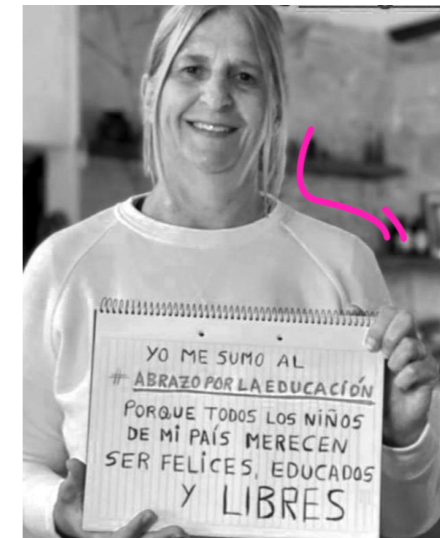 YO ME SUMO AL
# ABRAZO POR LA EDUCACIÓN
PORQUE TODOS LOS NIÑOS
DE Mi PAÍS MERECEN
SER FELiCES, EDUCADOS
Y LIBRES